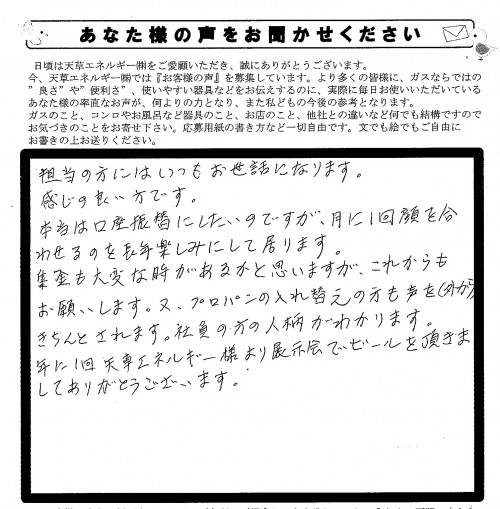 あなた様の声をお聞かせください
日頃は天草エネルギー㈱をご愛顧いただき、誠にありがとうございます。
今、天草エネルギー㈱では『お客様の声』を募集しています。より多くの皆様に、ガスならではの
”良さ”や”便利さ”、使いやすい器具などをお伝えするのに、実際に毎日お使いいただいている
あなた様の率直なお声が、何よりの力となり、また私どもの今後の参考となります。
ガスのこと、コンロやお風呂など器具のこと、お店のこと、他社との違いなど何でも結構ですので
お気づきのことをお寄せ下さい。応募用紙の書き方など一切自由です。文でも絵でもご自由に
お書きの上お送りください。
担当の方にはいつもお世話になります。
感じの良い方です。
本当は口座振替にしたいのですが、月に1回顔を合
わせるのを長年楽しみにして居ります。
集金も大変な時があるかと思いますが、これからも
お願いします。又、プロパンの入れ替えの方も声を(外から)
きちんとされます。社員の方の人柄がわかります。
年に1回天草エネルギー様より展示会でビールを頂きま
してありがとうございます。